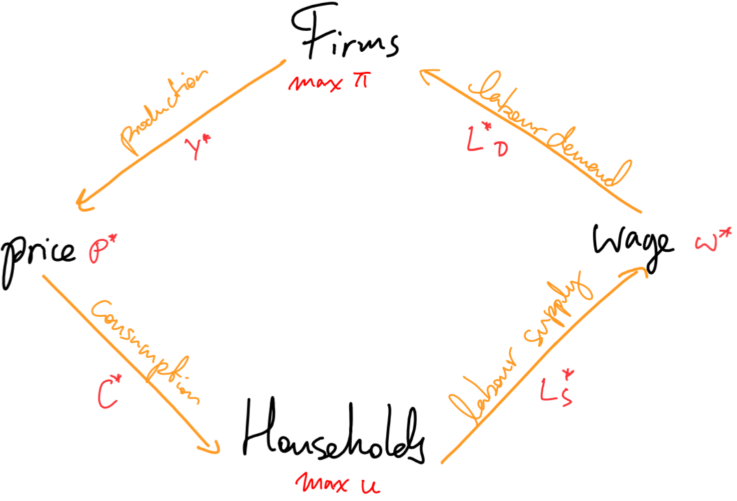 Firms
max π
production
Y*
labour demand
L*D
price P*
wage w*
consumption
C*
labour supply
Ls*
Households
max u